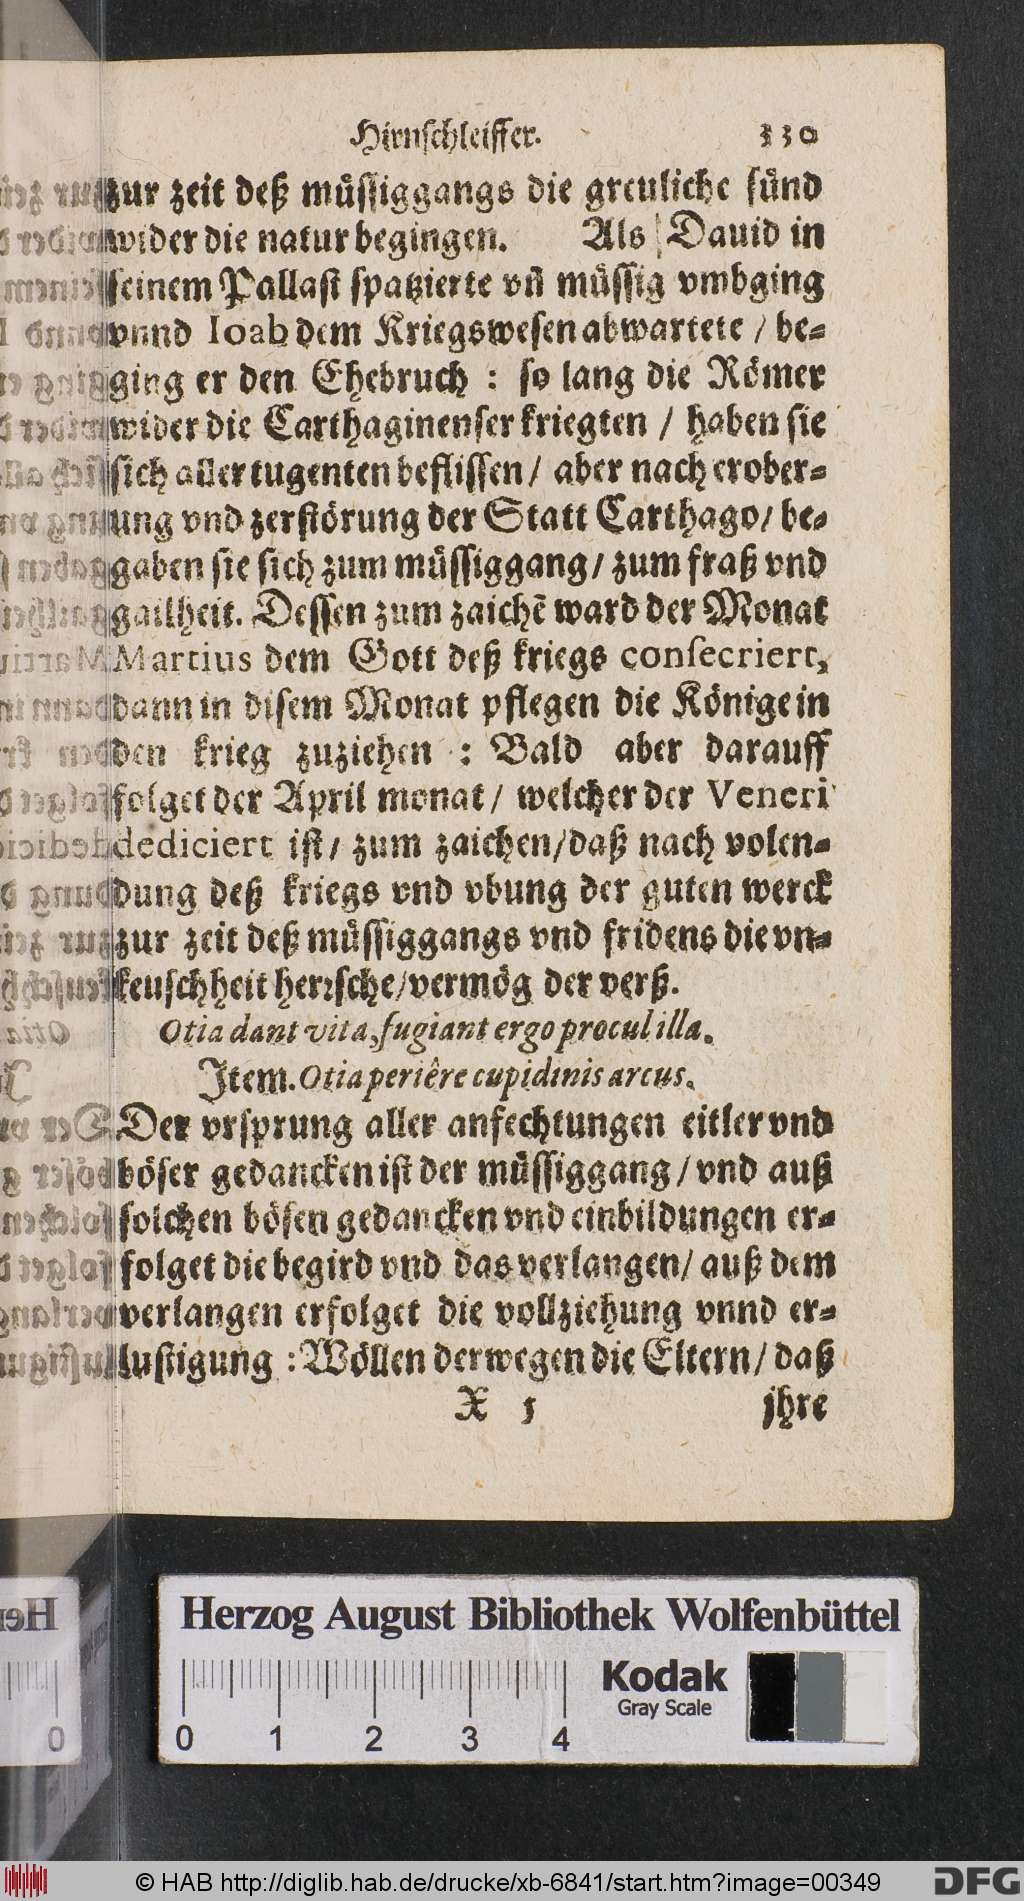 Hirnschleiffer. 330
zur zeit deß müssiggangs die greuliche sünd
wider die natur begingen. Als Dauid in
seinem Pallast spatzierte vñ müssig vmbging
vnnd Ioab dem Kriegswesen abwartete / be-
ging er den Ehebruch : so lang die Römer
wider die Carthaginenser kriegten / haben sie
sich aller tugenten beflissen / aber nach erober-
ung vnd zerstörung der Statt Carthago / be-
gaben sie sich zum müssiggang / zum fraß vnd
gailheit. Dessen zum zaichẽ ward der Monat
Martius dem Gott deß kriegs consecriert,
dann in disem Monat pflegen die Könige in
den krieg zuziehen : Bald aber darauff
folget der April monat / welcher der Veneri
dediciert ist / zum zaichen / daß nach volen-
dung deß kriegs vnd vbung der guten werck
zur zeit deß müssiggangs vnd fridens die vn-
keuschheit herrsche / vermög der verß.
Otia dant vita, fugiant ergo procul illa.
Item. Otia periêre cupidinis arcus.
Der vrsprung aller anfechtungen eitler vnd
böser gedancken ist der müssiggang / vnd auß
solchen bösen gedancken vnd einbildungen er-
folget die begird vnd das verlangen / auß dem
verlangen erfolget die vollziehung vnnd er-
lustigung : Wöllen derwegen die Eltern / daß
X 5 jhre
Herzog August Bibliothek Wolfenbüttel
Kodak
Gray Scale
0 1 2 3 4
© HAB http://diglib.hab.de/drucke/xb-6841/start.htm?image=00349
DFG